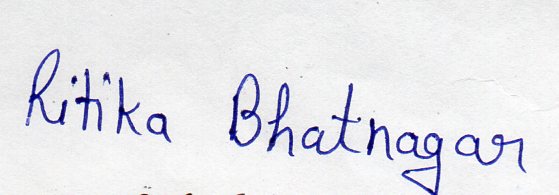 Ritika Bhatnagar